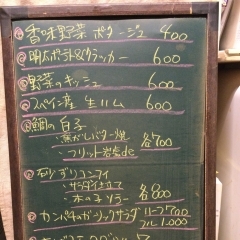 香味野菜ポタージュ 400
明太ポテト&クラッカー 600
野菜のキッシュ 600
スペイン産 生ハム 600
鯛の白子
・焦がしバター焼
・フリット岩塩de 各700
砂ずりコンフィ
・サラダ仕立て
・木の子ソテー 各800
カンパチのガーリックサラダ ハーフ700
フル1.000